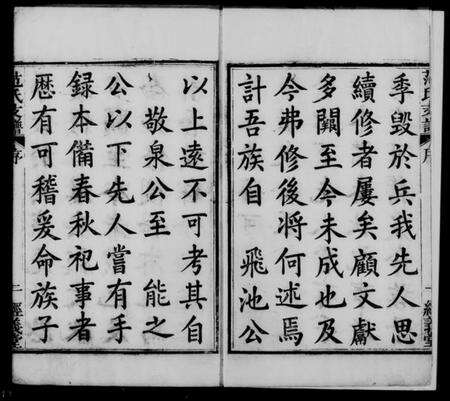 范氏支譜
序
一
經義堂
季毀於兵我先人思
續修者屢矣顧文獻
多闕至今未成也及
今弗修後將何述焉
計吾族自 飛池公
以上遠不可考其自
敬泉公至 能之
公以下先人嘗有手
録本備春秋祀事者
歴有可稽爰命族子
范氏支譜
序
二
經義堂